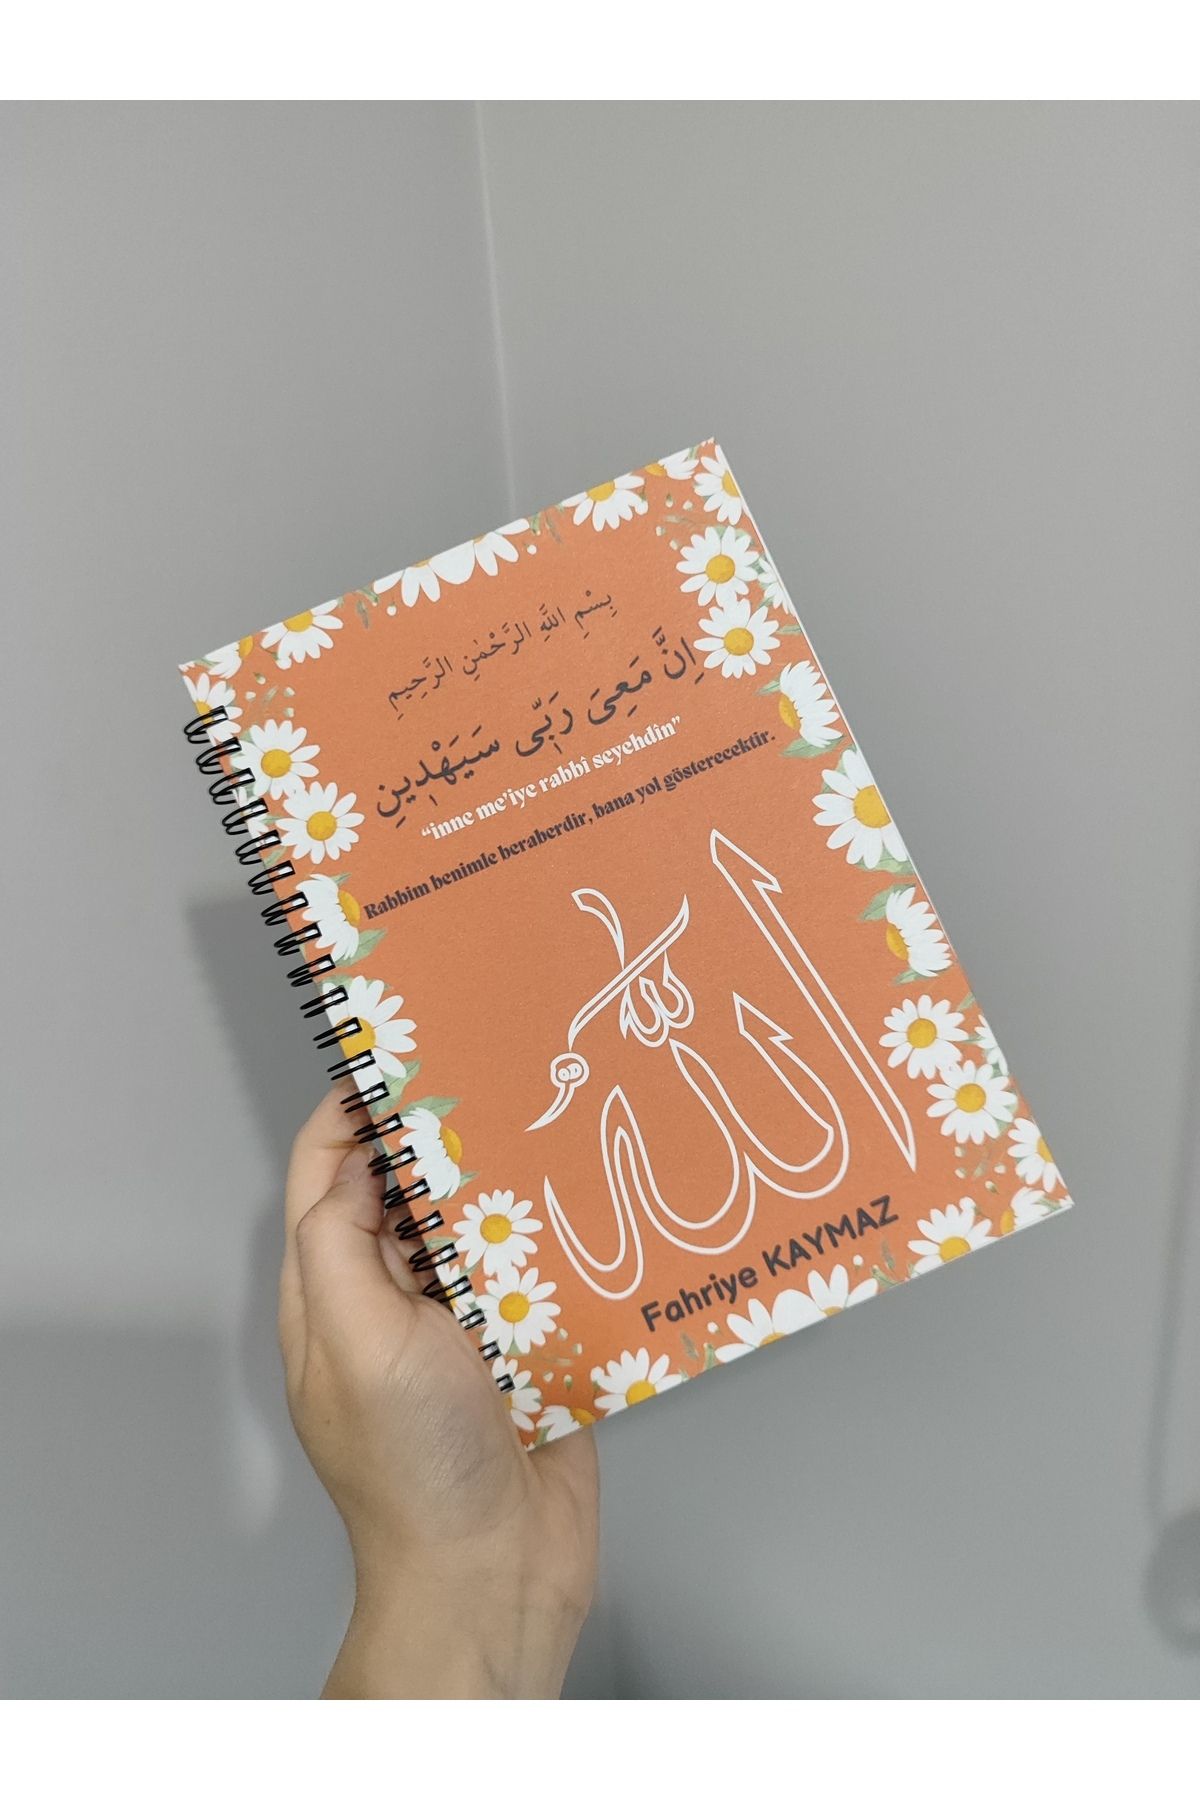 بِسْمِ اللَّهِ الرَّحْمٰنِ الرَّحِيمِ
اِنَّ مَعِىَ رَبّٖى سَيَهْدٖينِ
“inne me’iye rabbî seyehdîn”
Rabbim benimle beraberdir, bana yol gösterecektir.
الله
Fahriye KAYMAZ